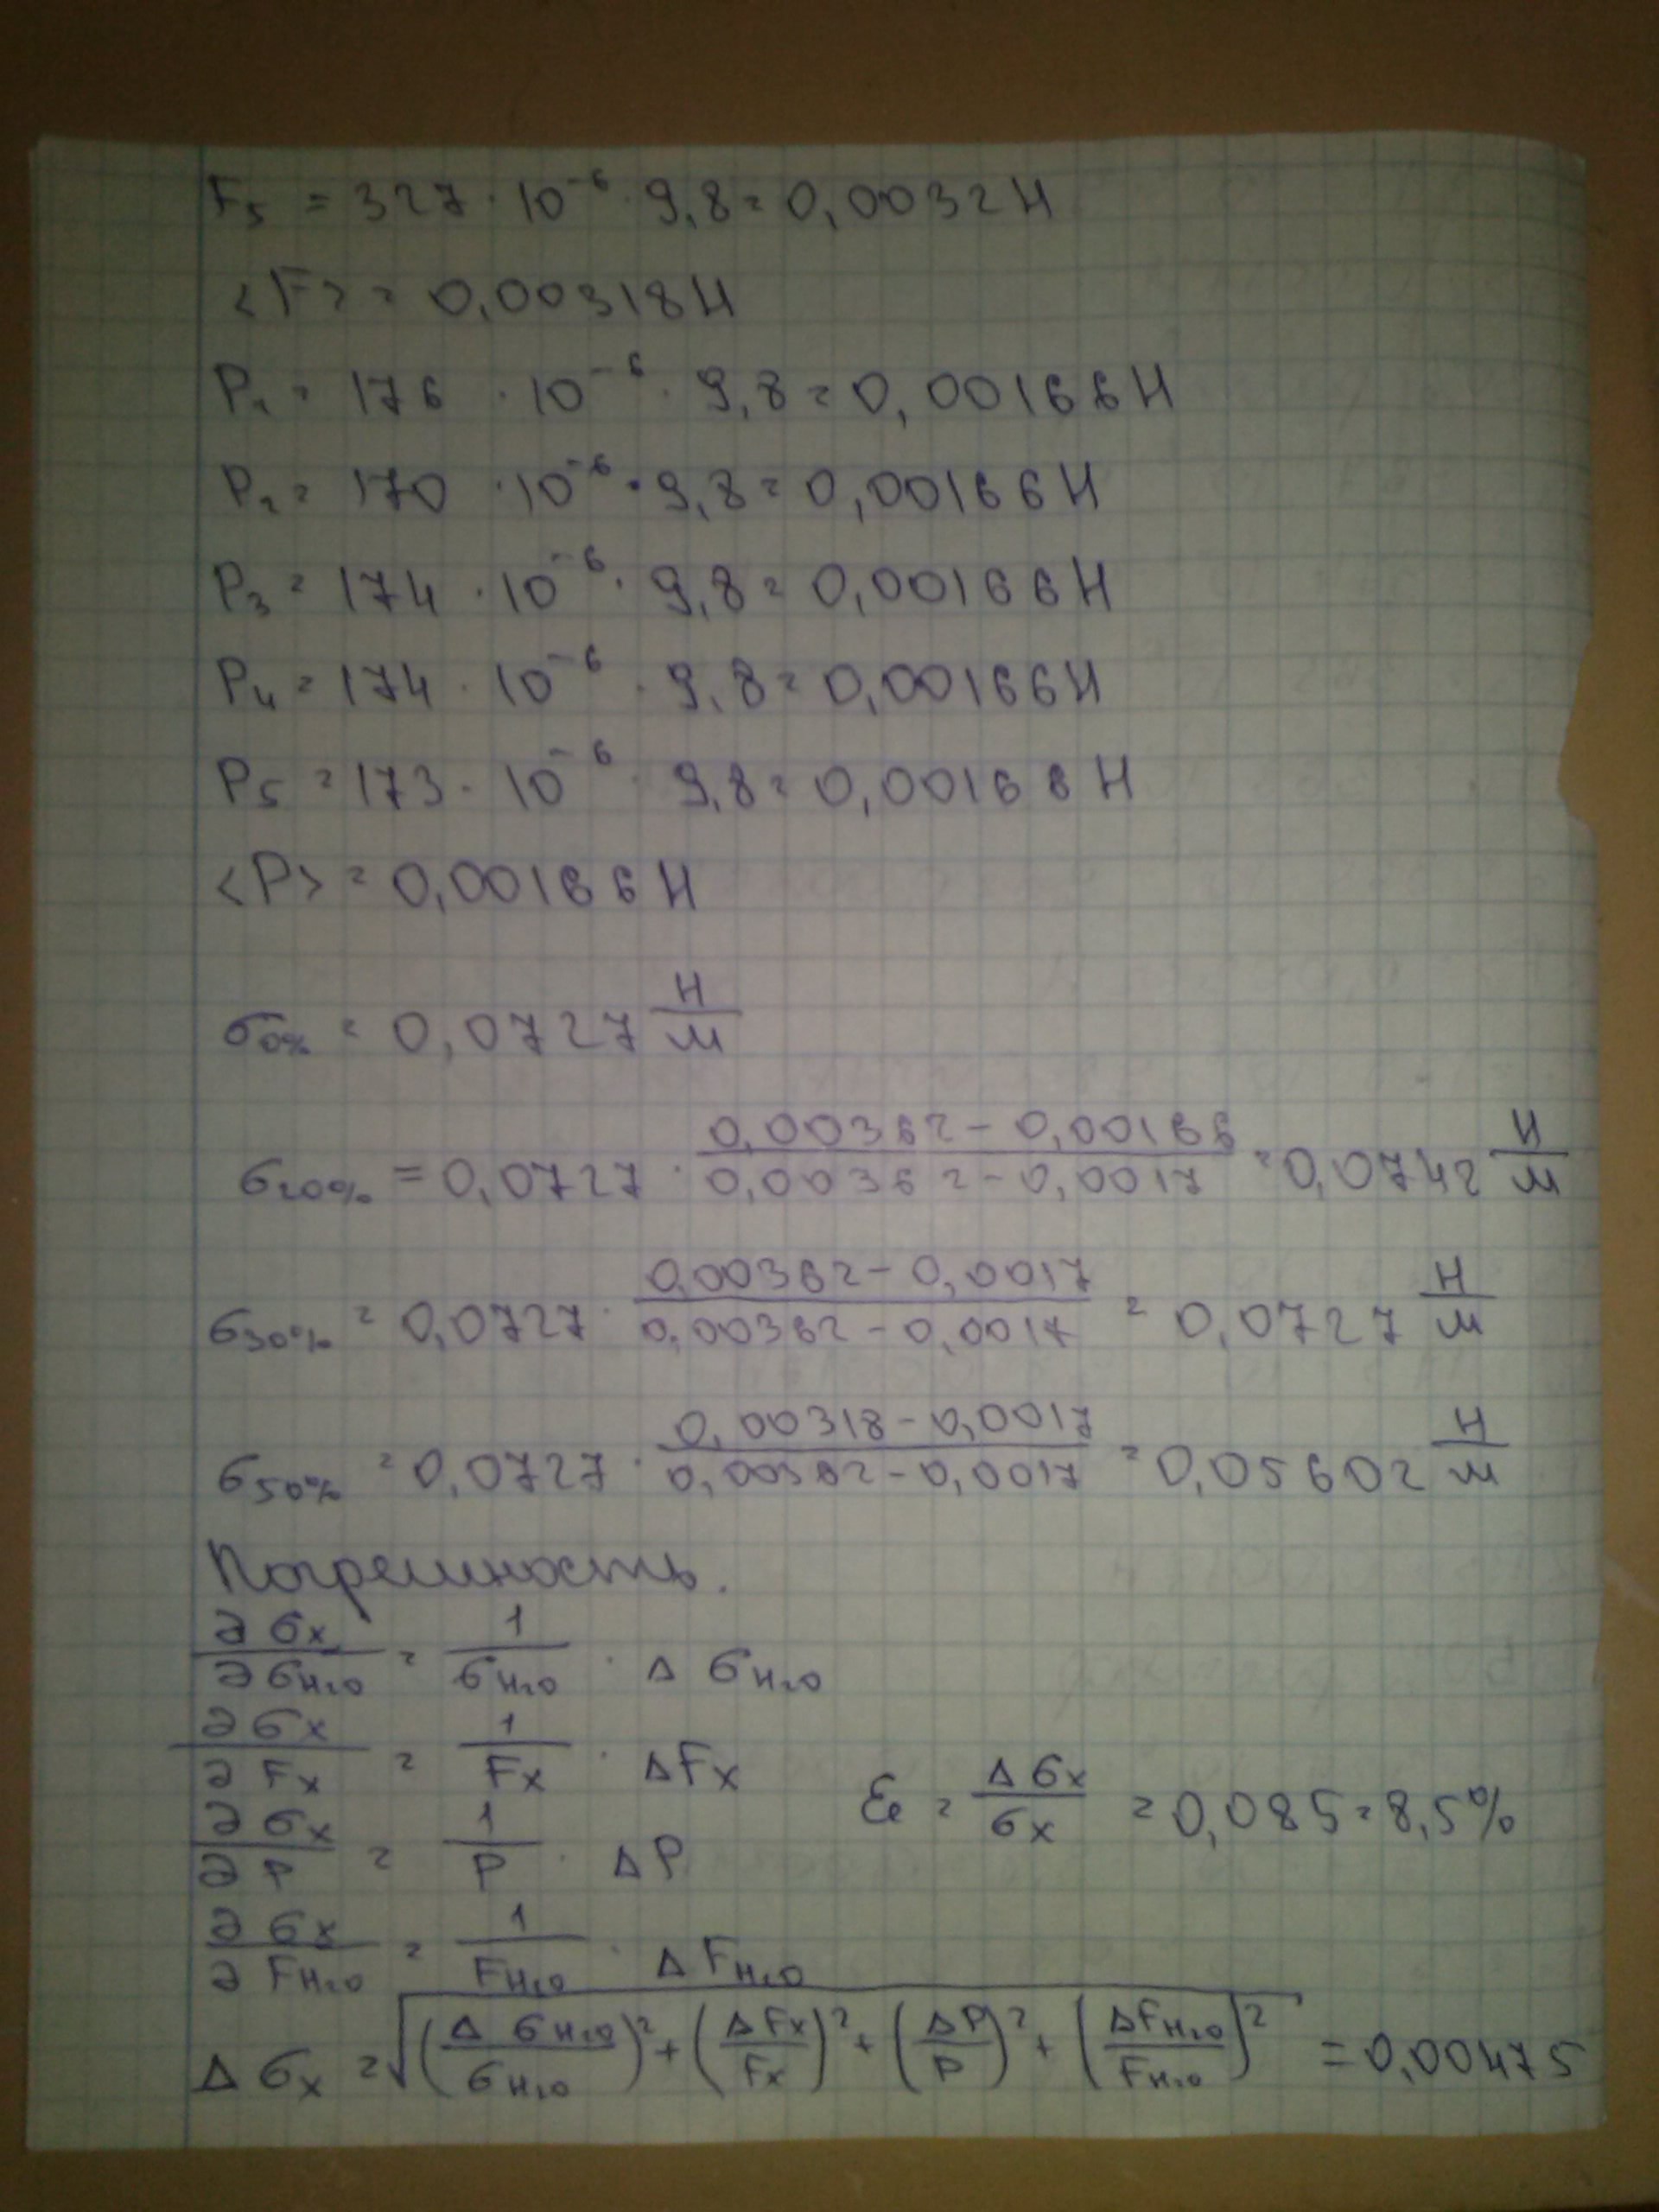 F₅ = 327 · 10⁻⁶ · 9,8 = 0,0032 Н
<F> = 0,00318 Н
P₁ = 176 · 10⁻⁶ · 9,8 = 0,00166 Н
P₂ = 170 · 10⁻⁶ · 9,8 = 0,00166 Н
P₃ = 174 · 10⁻⁶ · 9,8 = 0,00166 Н
P₄ = 174 · 10⁻⁶ · 9,8 = 0,00166 Н
P₅ = 173 · 10⁻⁶ · 9,8 = 0,00166 Н
<P> = 0,00166 Н
σ₀% = 0,0727 Н/м
σ₂₀% = 0,0727 · (0,00362 - 0,00166)/(0,00362 - 0,0017) = 0,0742 Н/м
σ₃₀% = 0,0727 · (0,00362 - 0,0017)/(0,00362 - 0,0017) = 0,0727 Н/м
σ₅₀% = 0,0727 · (0,00318 - 0,0017)/(0,00362 - 0,0017) = 0,05602 Н/м
Погрешность.
∂σx/∂σH₂O = 1/σH₂O · ΔσH₂O
∂σx/∂Fx = 1/Fx · ΔFx
ε = Δσx/σx = 0,085 = 8,5%
∂σx/∂P = 1/P · ΔP
∂σx/∂FH₂O = 1/FH₂O · ΔFH₂O
Δσx = √((ΔσH₂O/σH₂O)² + (ΔFx/Fx)² + (ΔP/P)² + (ΔFH₂O/FH₂O)²) = 0,00475